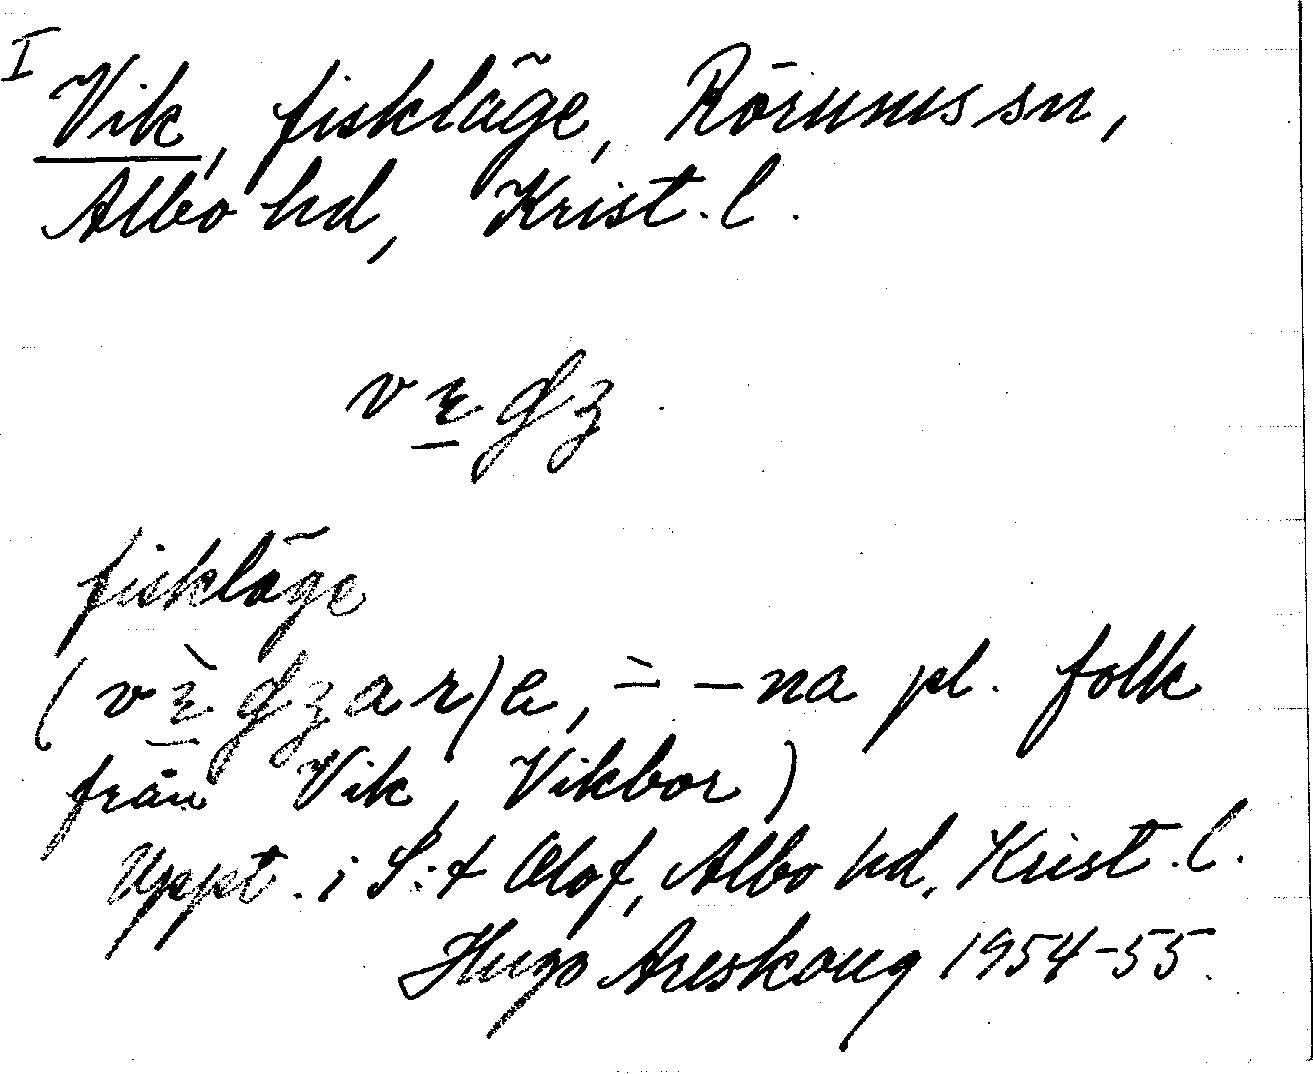 I
Vik, fiskläge, Rörums sn,
Albo hd, Krist. l.
fiskläge
a, = -na pl. folk
från Vik, Vikbor)
Uppt. i S:t Olof, Albo hd, Krist. l.
Hugo Areskoug 1954-55.